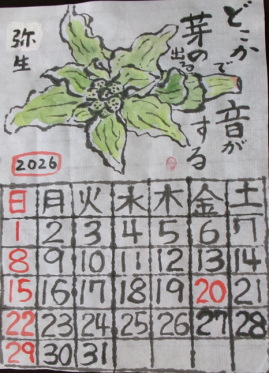 どこかで
芽の出る
音が
する
弥生
2026
日 月 火 水 木 金 土
1 2 3 4 5 6 7
8 9 10 11 12 13 14
15 16 17 18 19 20 21
22 23 24 25 26 27 28
29 30 31